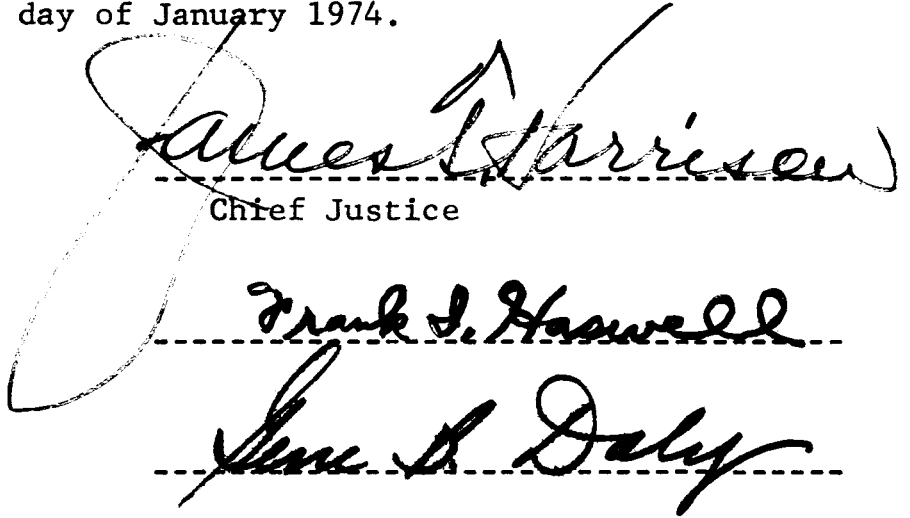 day of January 1974.
James T. Harrison
Chief Justice
Frank I. Haswell
Gene B. Daly